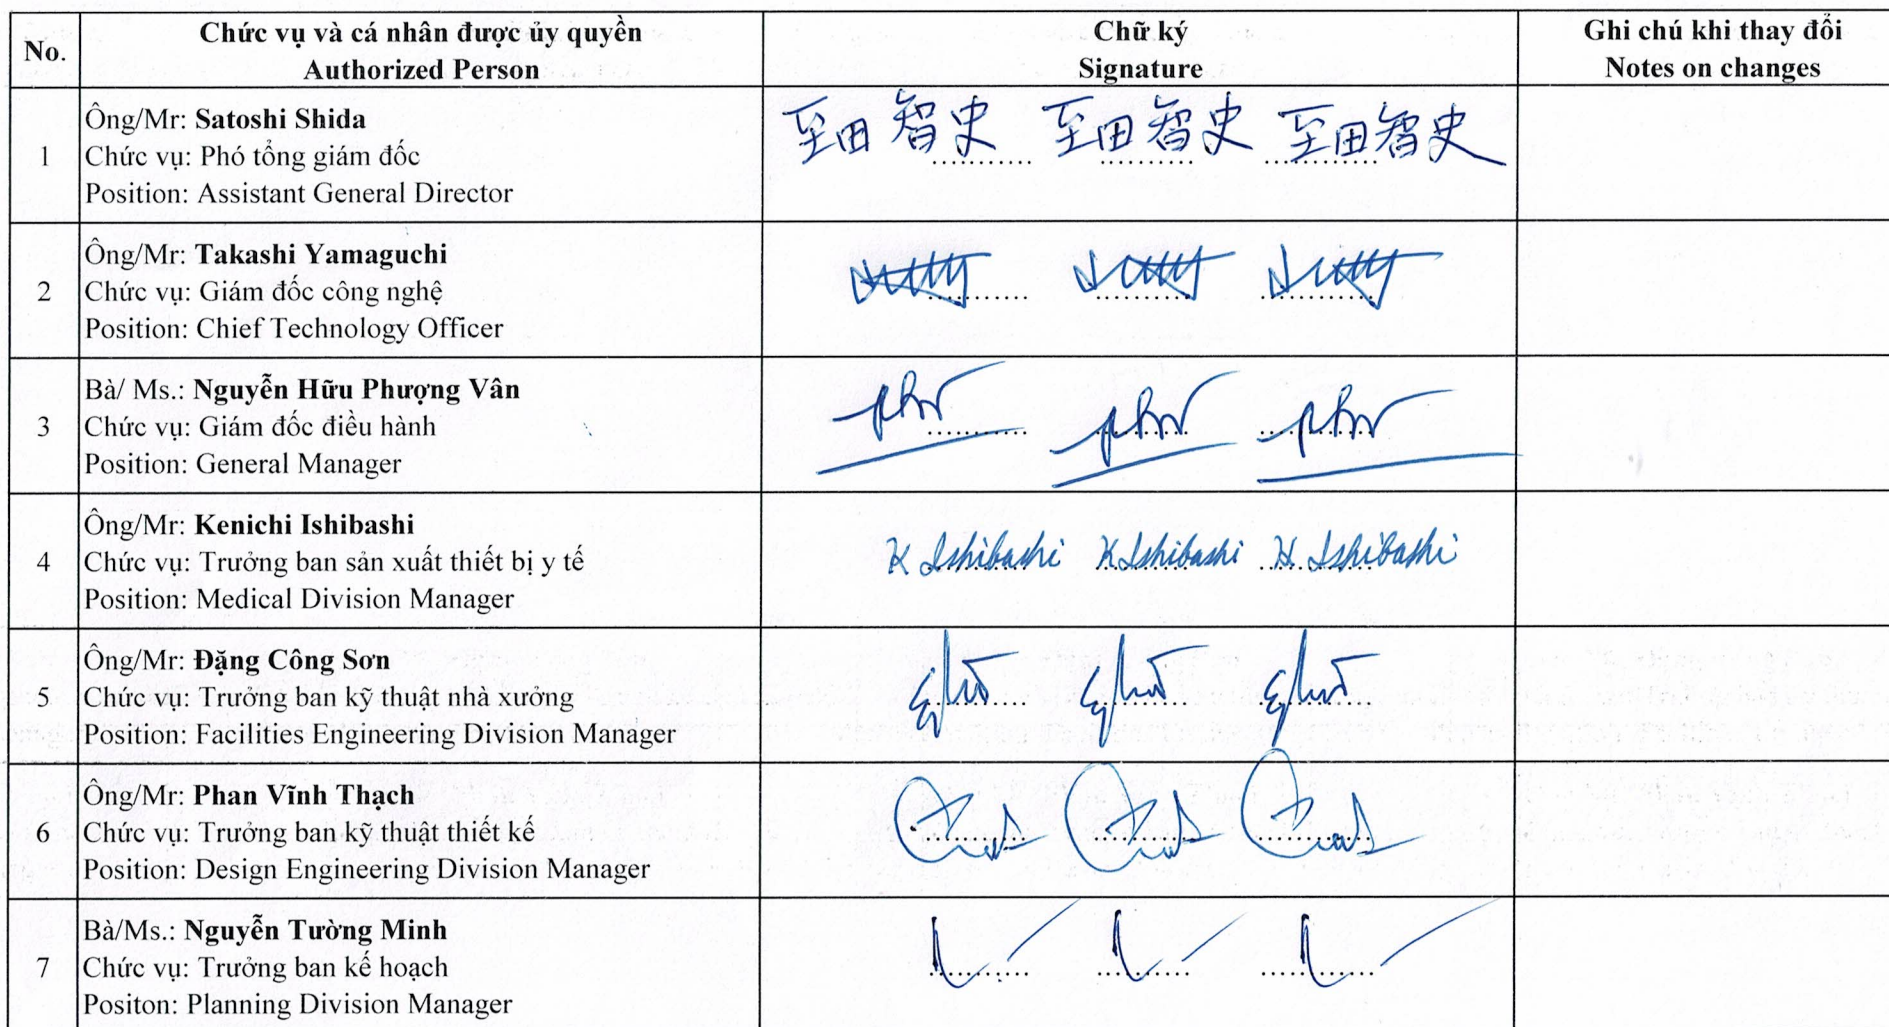 No.
Chức vụ và cá nhân được ủy quyền
Authorized Person
Chữ ký
Signature
Ghi chú khi thay đổi
Notes on changes
1
Ông/Mr: Satoshi Shida
Chức vụ: Phó tổng giám đốc
Position: Assistant General Director
至田 智史 至田智史 至田智史
2
Ông/Mr: Takashi Yamaguchi
Chức vụ: Giám đốc công nghệ
Position: Chief Technology Officer
3
Bà/ Ms.: Nguyễn Hữu Phượng Vân
Chức vụ: Giám đốc điều hành
Position: General Manager
4
Ông/Mr: Kenichi Ishibashi
Chức vụ: Trưởng ban sản xuất thiết bị y tế
Position: Medical Division Manager
K Ishibashi K Ishibashi K Ishibashi
5
Ông/Mr: Đặng Công Sơn
Chức vụ: Trưởng ban kỹ thuật nhà xưởng
Position: Facilities Engineering Division Manager
6
Ông/Mr: Phan Vĩnh Thạch
Chức vụ: Trưởng ban kỹ thuật thiết kế
Position: Design Engineering Division Manager
7
Bà/Ms.: Nguyễn Tường Minh
Chức vụ: Trưởng ban kế hoạch
Positon: Planning Division Manager